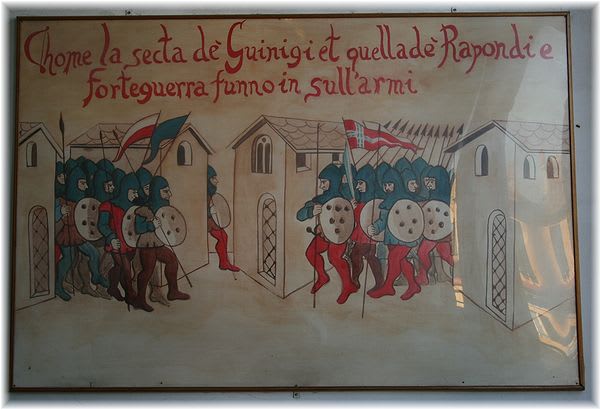 Chome la secta dè Guinigi et quella dè Rapondi e
forteguerra funno in sull'armi